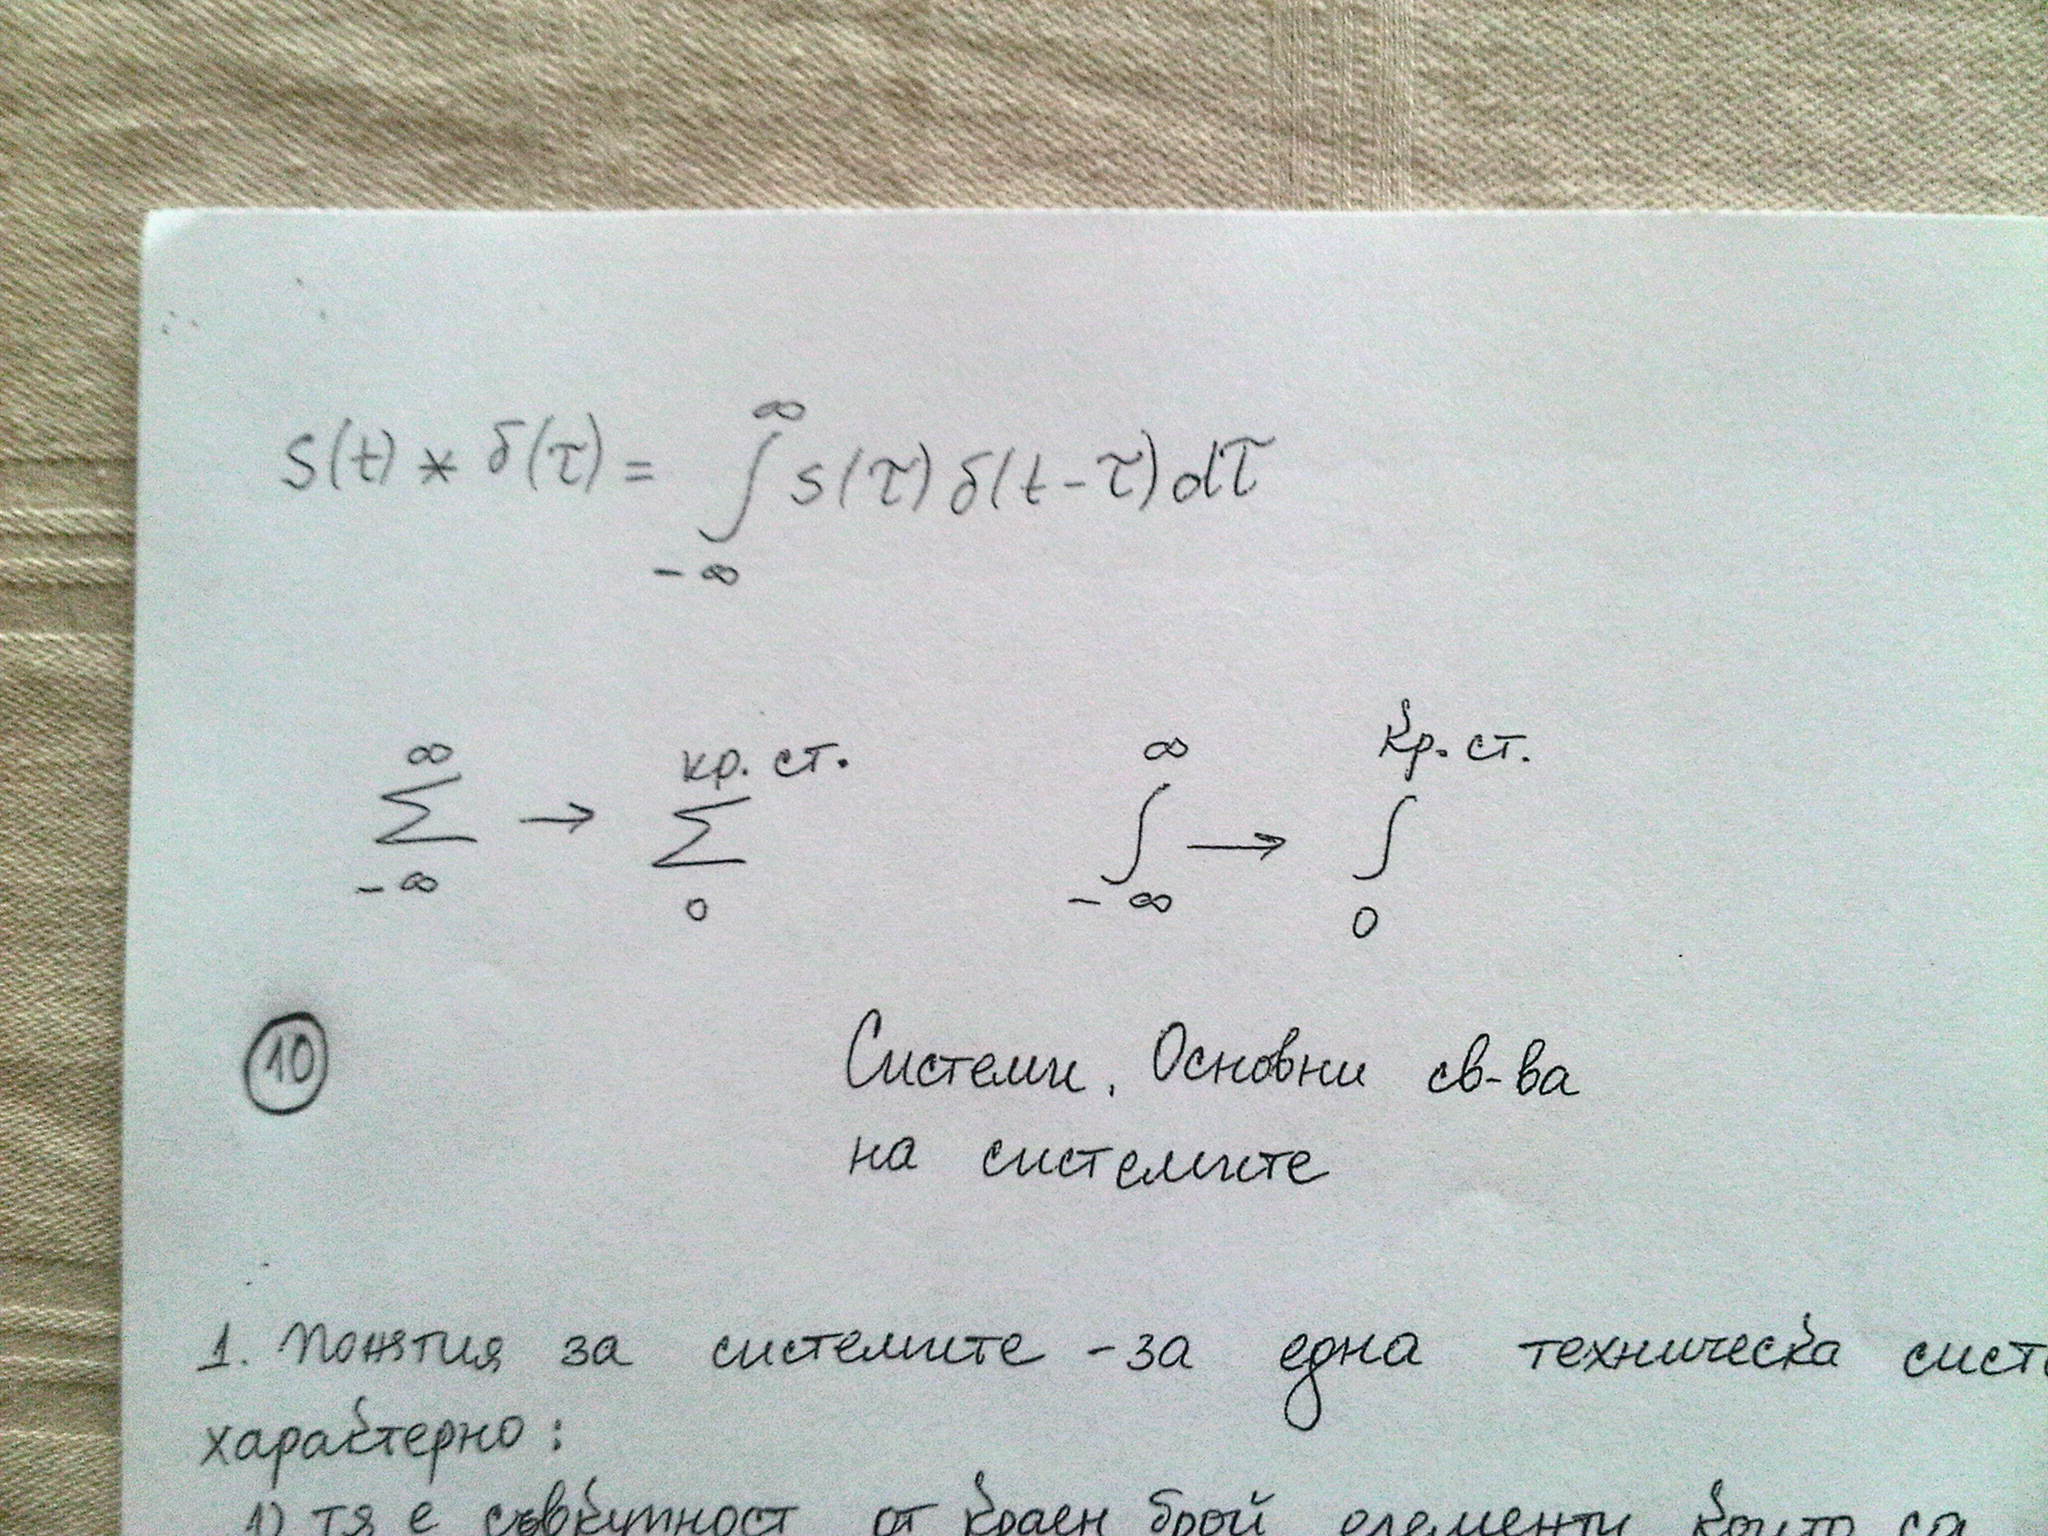 s(t) * δ(τ) = ∫_{-∞}^{∞} s(τ) δ(t-τ) dτ
∑_{-∞}^{∞} → ∑_{0}^{кр. ст.} ∫_{-∞}^{∞} → ∫_{0}^{кр. ст.}
10 Системи. Основни св-ва
на системите
1. Понятия за системите - за една техническа систе
характерно:
1) тя е съвкупност от краен брой елементи които са